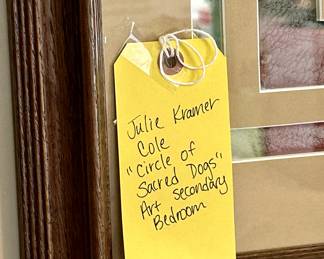 Julie Kramer
Cole
"Circle of
Sacred Dogs"
Art secondary
Bedroom